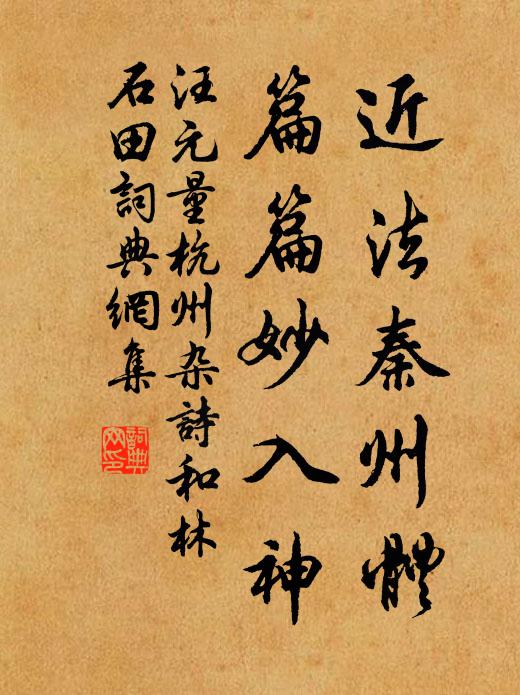 近法秦州體
篇篇妙入神
汪元量杭州杂詩和林
石田詞典網集
詞典网印